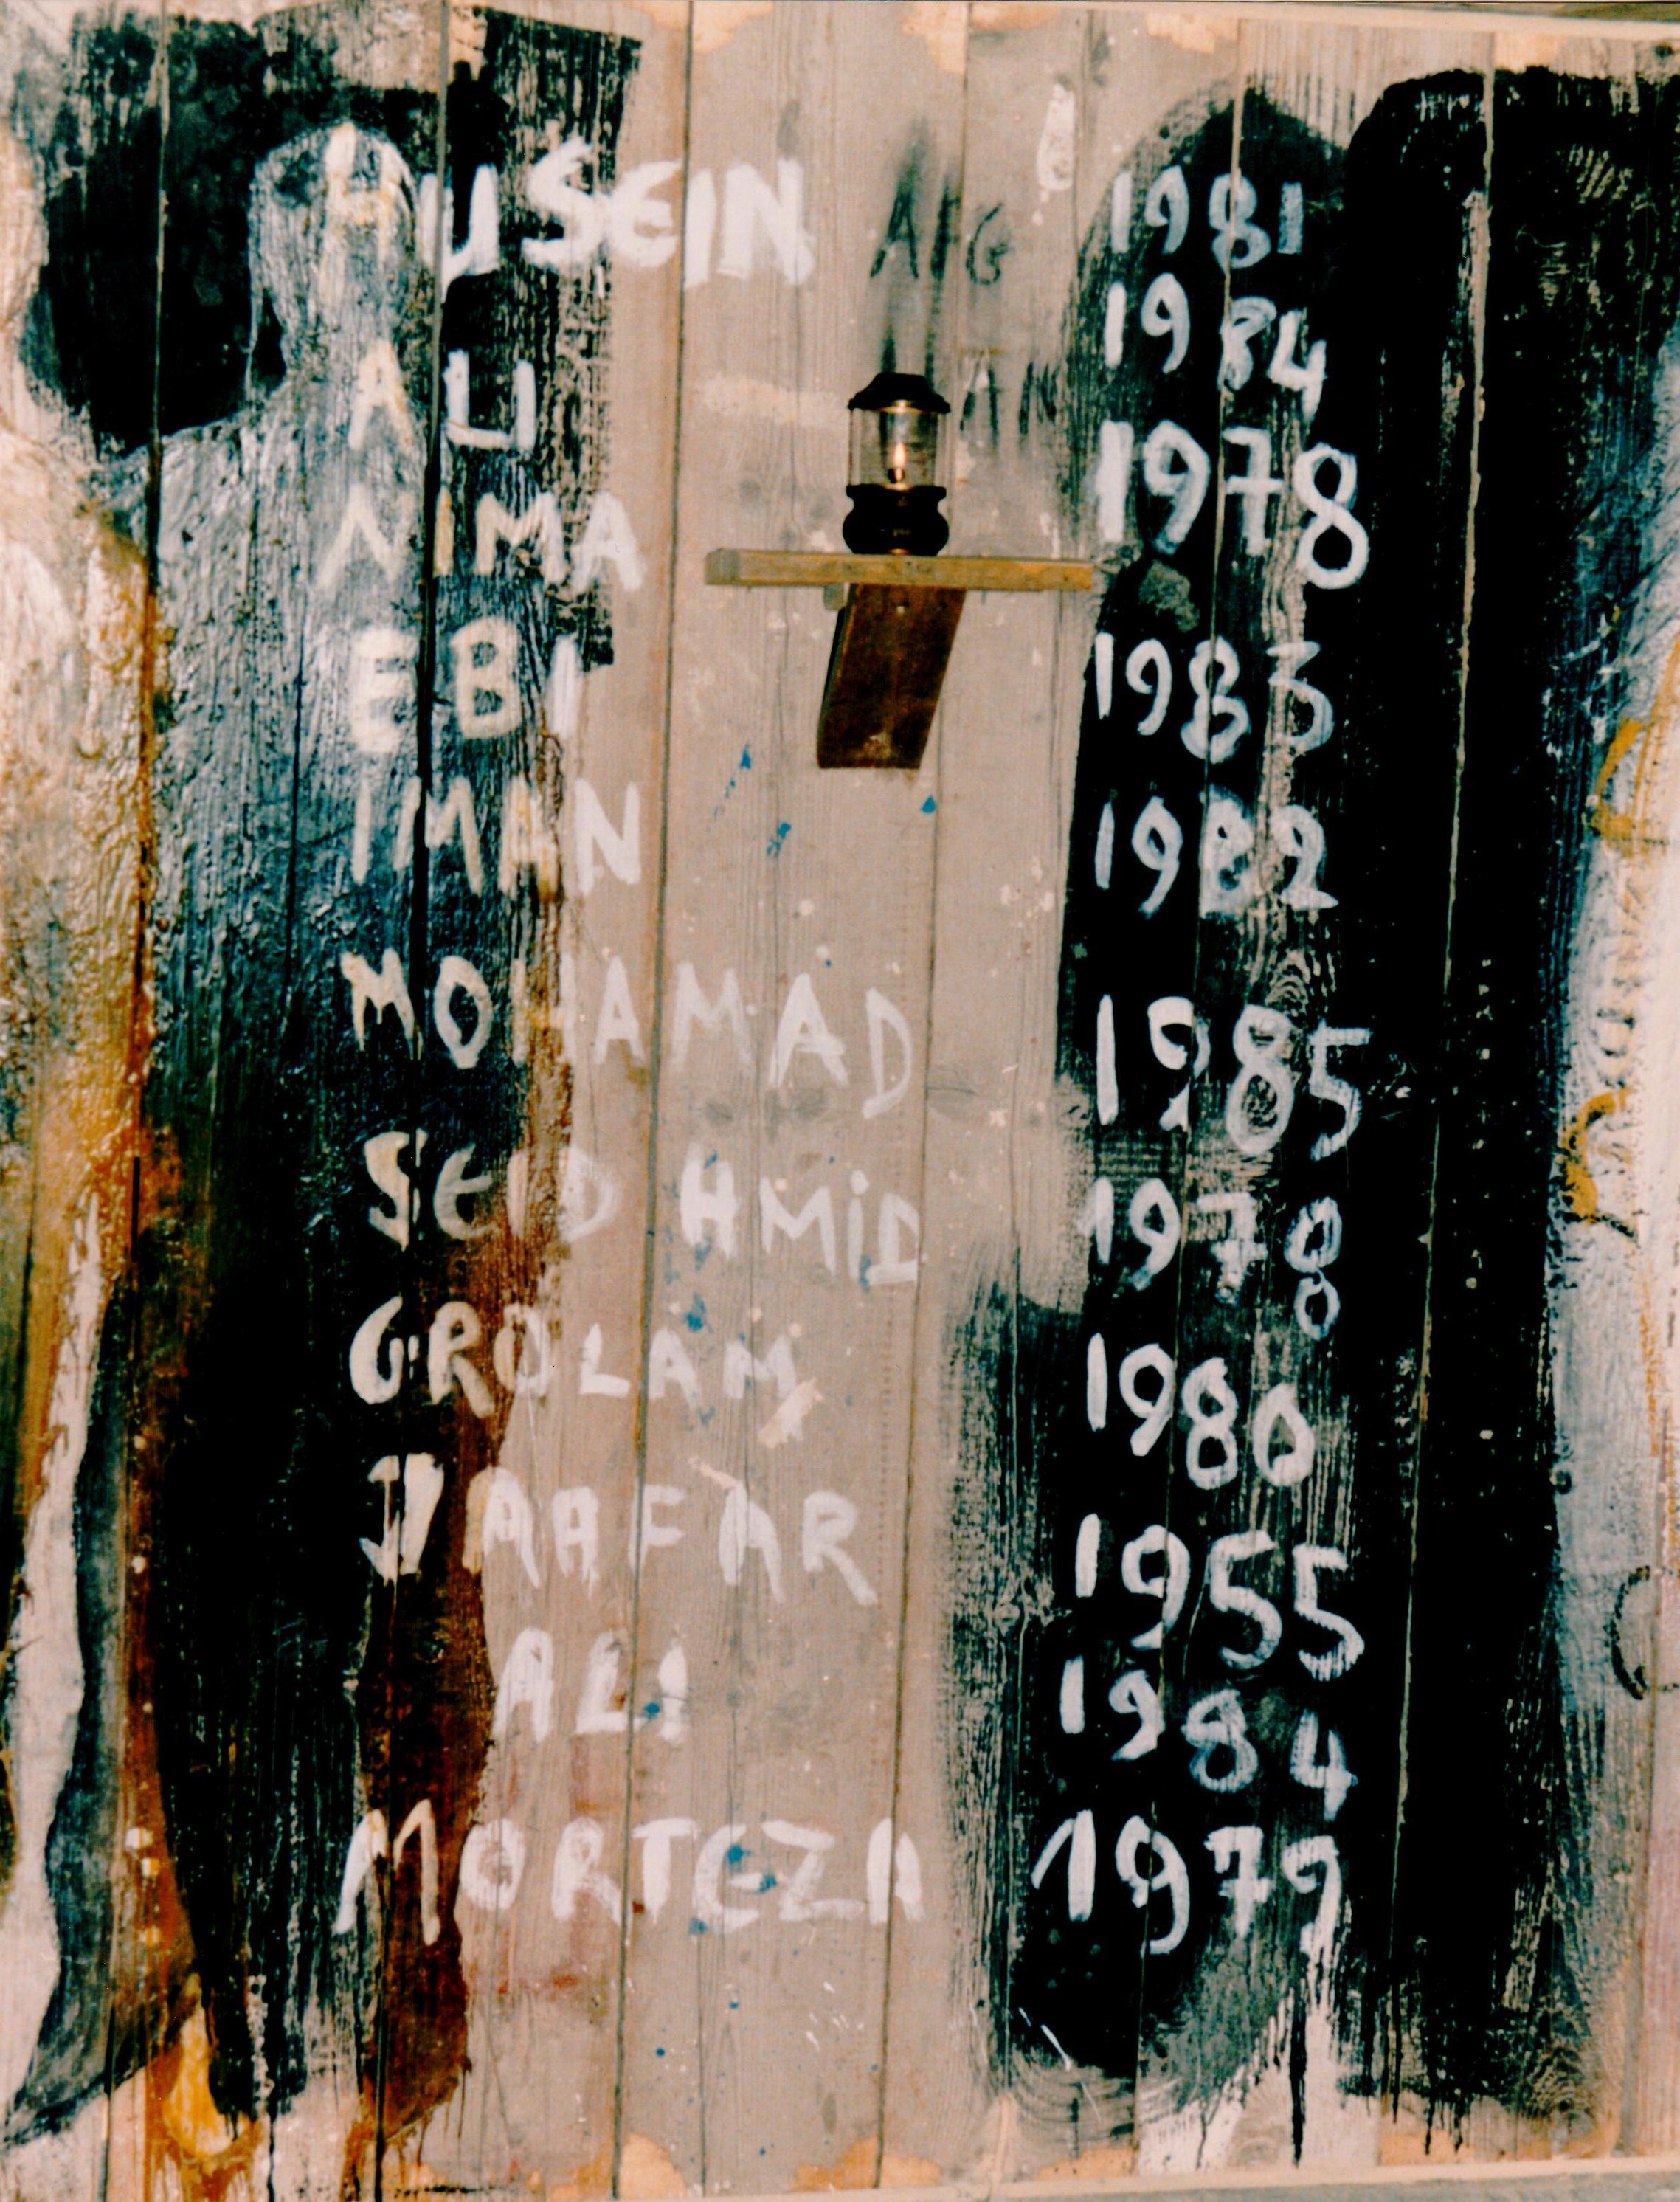 HUSEIN 1981
ALI 1984
NIMA 1978
EBI 1983
IMAN 1982
MOHAMAD 1985
SEID HMID 1978
GROLAM 1980
JAAFAR 1955
ALI 1984
MORTEZA 1979